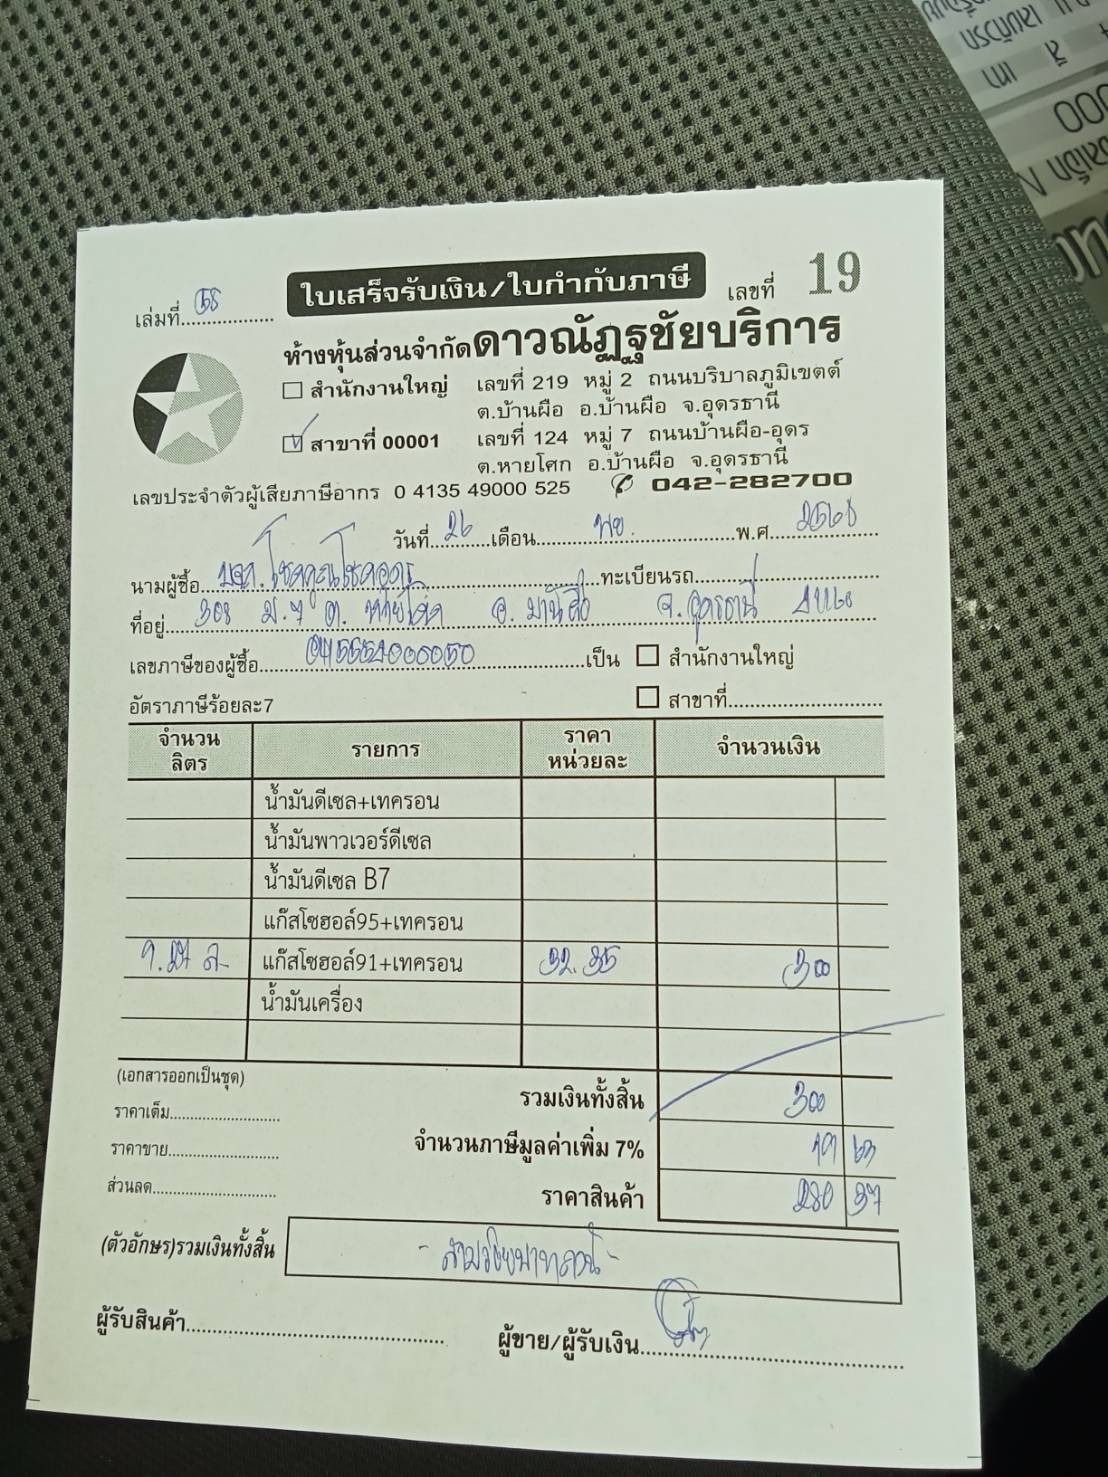 ใบเสร็จรับเงิน/ใบกำกับภาษี
เล่มที่ เลขที่ 19
ห้างหุ้นส่วนจำกัดดาวณัฏฐชัยบริการ
สำนักงานใหญ่ เลขที่ 219 หมู่ 2 ถนนบริบาลภูมิเขตต์
ต.บ้านผือ อ.บ้านผือ จ.อุดรธานี
สาขาที่ 00001 เลขที่ 124 หมู่ 7 ถนนบ้านผือ-อุดร
ต.หายโศก อ.บ้านผือ จ.อุดรธานี
เลขประจำตัวผู้เสียภาษีอากร 0 4135 49000 525 042-282700
วันที่ 26 เดือน พย. พ.ศ. 2568
นามผู้ซื้อ ทะเบียนรถ
ที่อยู่ 308 ม.7 ต. หายโศก อ. บ้านผือ จ. อุดรธานี
เลขภาษีของผู้ซื้อ เป็น สำนักงานใหญ่
อัตราภาษีร้อยละ7 สาขาที่
จำนวนลิตร รายการ ราคาหน่วยละ จำนวนเงิน
น้ำมันดีเซล+เทครอน
น้ำมันพาวเวอร์ดีเซล
น้ำมันดีเซล B7
แก๊สโซฮอล์95+เทครอน
9.27 ล แก๊สโซฮอล์91+เทครอน 32.35 300
น้ำมันเครื่อง
(เอกสารออกเป็นชุด)
รวมเงินทั้งสิ้น 300
ราคาเต็ม
จำนวนภาษีมูลค่าเพิ่ม 7% 19 63
ราคาขาย
ราคาสินค้า 280 37
ส่วนลด
(ตัวอักษร)รวมเงินทั้งสิ้น - สามร้อยบาทถ้วน -
ผู้รับสินค้า ผู้ขาย/ผู้รับเงิน